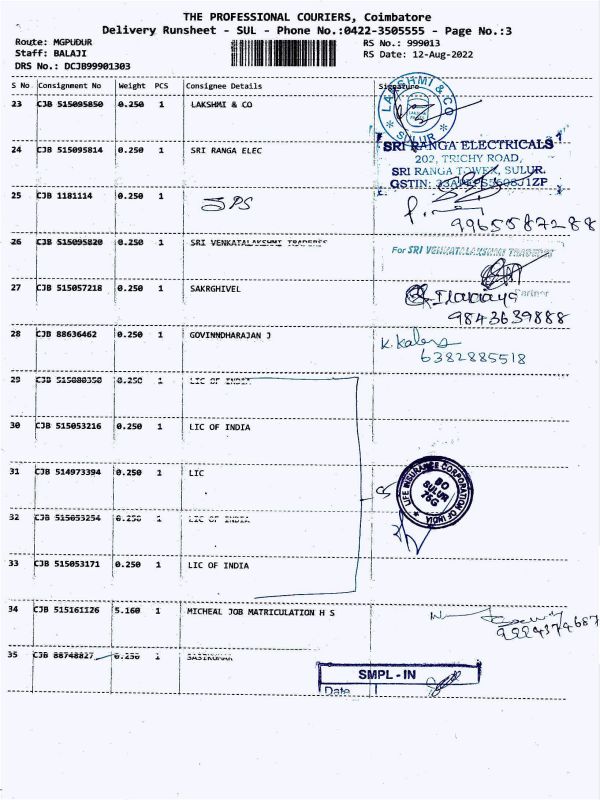 THE PROFESSIONAL COURIERS, Coimbatore
Delivery Runsheet - SUL - Phone No.:0422-3505555 - Page No.:3
Route: MGPUDUR RS No.: 999013
Staff: BALAJI RS Date: 12-Aug-2022
DRS No.: DCJB99901303
S No Consignment No Weight PCS Consignee Details Signature
23 CJB 515095850 0.250 1 LAKSHMI & CO
LAKSHMI & CO
SULUR
24 CJB 515095814 0.250 1 SRI RANGA ELEC
SRI RANGA ELECTRICALS
202, TRICHY ROAD,
SRI RANGA TOWER, SULUR.
GSTIN:
25 CJB 1181114 0.250 1 JPS
9965587288
26 CJB 515095820 0.250 1 SRI VENKATALAKSHMI TRADERSS
For SRI VENKATALAKSHMI TRADERSS
Partner
27 CJB 515057218 0.250 1 SAKRGHIVEL
9843639888
28 CJB 88636462 0.250 1 GOVINNDHARAJAN J
6382885518
29 CJB 515080350 0.250 1 LIC OF INDIA
30 CJB 515053216 0.250 1 LIC OF INDIA
31 CJB 514973394 0.250 1 LIC
LIFE INSURANCE CORPORATION OF INDIA
BO
SULUR
76G
32 CJB 515053254 0.250 1 LIC OF INDIA
33 CJB 515053171 0.250 1 LIC OF INDIA
34 CJB 515161126 5.160 1 MICHEAL JOB MATRICULATION H S
35 CJB 88748827 0.250 1 SASIKUMAR
SMPL - IN
Date